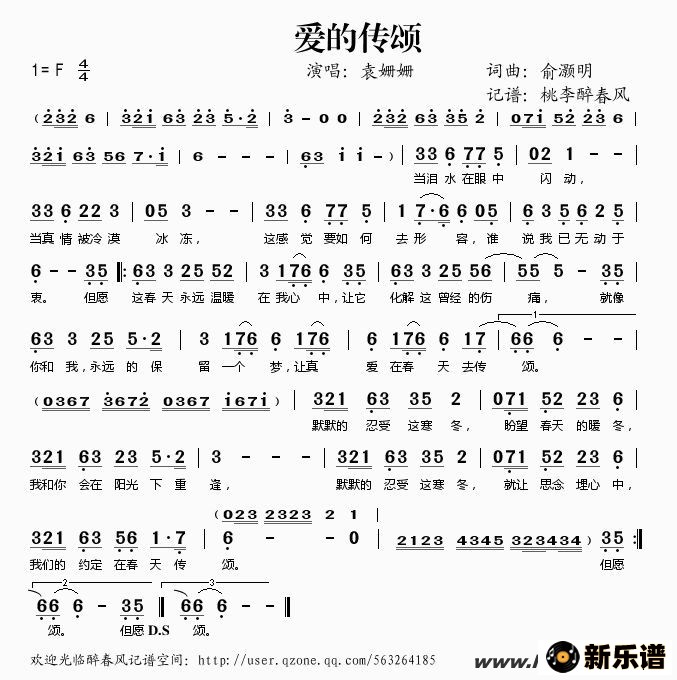 爱的传颂
1=F 4/4 演唱：袁姗姗 词曲：俞灏明
记谱：桃李醉春风
(232 6 | 321 63 23 5·2 | 3 - 0 0 | 232 63 35 2 | 071 52 23 6 |
321 63 56 7·1 | 6 - - - | 63 1 1 -) | 33 6 77 5 | 02 1 - - |
当泪 水 在眼 中 闪 动，
33 6 22 3 | 05 3 - - | 33 6 77 5 | 1 7·6 6 05 | 63 5 62 5 |
当真 情 被冷 漠 冰 冻， 这感 觉 要如 何 去 形 容，谁 说 我 已 无 动 于
6 - - 35 |: 63 3 25 52 | 3 176 6 35 | 63 3 25 56 | 55 5 - 35 |
衷。 但愿 这春 天 永远 温暖 在 我心 中，让它 化解 这 曾经 的伤 痛， 就像
63 3 25 5·2 | 3 176 6 35 | 6 176 6 17 | 66 6 - - |
1
你和 我，永远 的 保 留 一个 梦，让真 爱 在春 天 去传 颂。
(0367 3672 0367 1671) | 321 63 35 2 | 071 52 23 6 |
默默的 忍受 这寒 冬， 盼望 春天 的暖 冬，
321 63 23 5·2 | 3 - - - | 321 63 35 2 | 071 52 23 6 |
我和你 会在 阳光 下 重 逢， 默默的 忍受 这寒 冬， 就让 思念 埋心 中，
(023 2323 2 1 |
321 63 56 1·7 | 6 - - 0 | 2123 4345 2345 323434) 35 :|
我们的 约定 在春 天 传 颂。 但愿
2 3
66 6 - 35 :| 66 6 - - ||
颂。 但愿 D.S 颂。
欢迎光临醉春风记谱空间：http://user.qzone.qq.com/563264185
www. 新乐谱